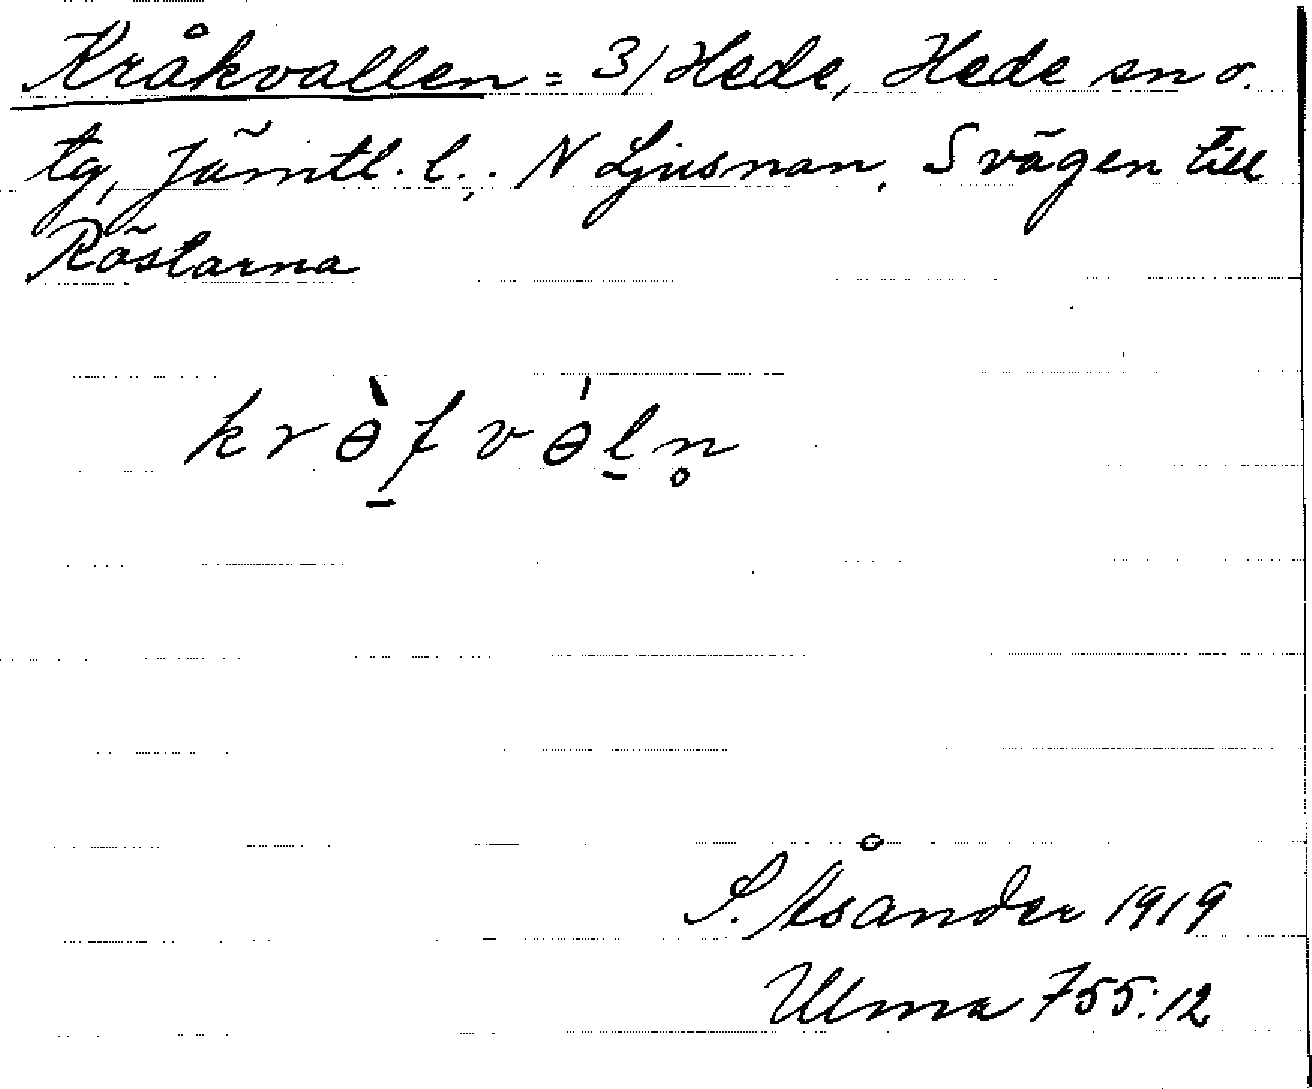 Kråkvallen = 3/ Hede, Hede sn o.
tg, Jämtl. l.. N Ljusnan, S vägen till
Röstarna
krɵ̀f vɵ́l̠n̥
S. Åsander 1919
Ulma 755:12